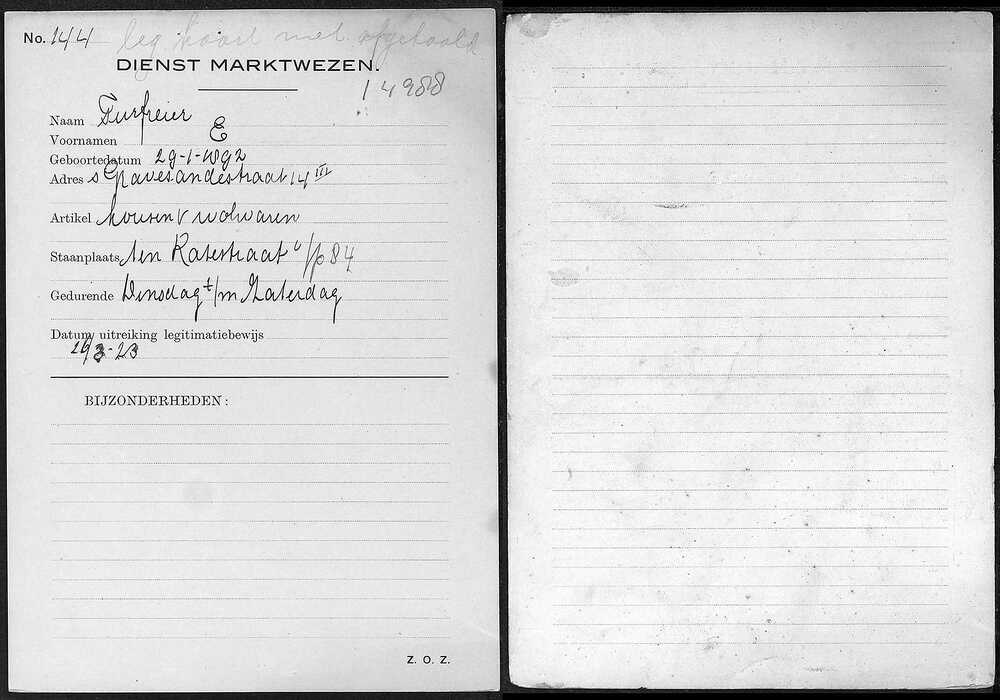 No. 144 leg kaart niet afgehaald
DIENST MARKTWEZEN.
14988
Naam Turfreier
Voornamen E
Geboortedatum 29-1-1892
Adres s Gravesandestraat 14 III
Artikel kousen & wolwaren
Staanplaats ten Katestraat t/o 84
Gedurende Dinsdag t/m Zaterdag
Datum uitreiking legitimatiebewijs
3-23
BIJZONDERHEDEN:
Z. O. Z.